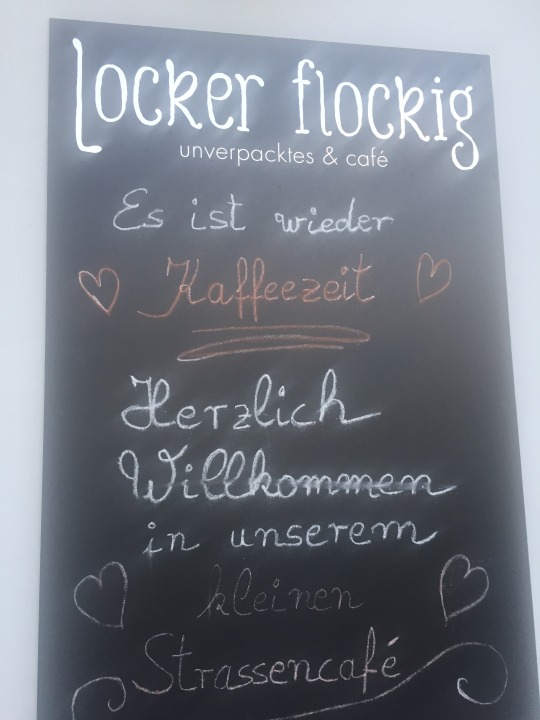 locker flockig
unverpacktes & café
Es ist wieder
Kaffeezeit
Herzlich
Willkommen
in unserem
kleinen
Strassencafé